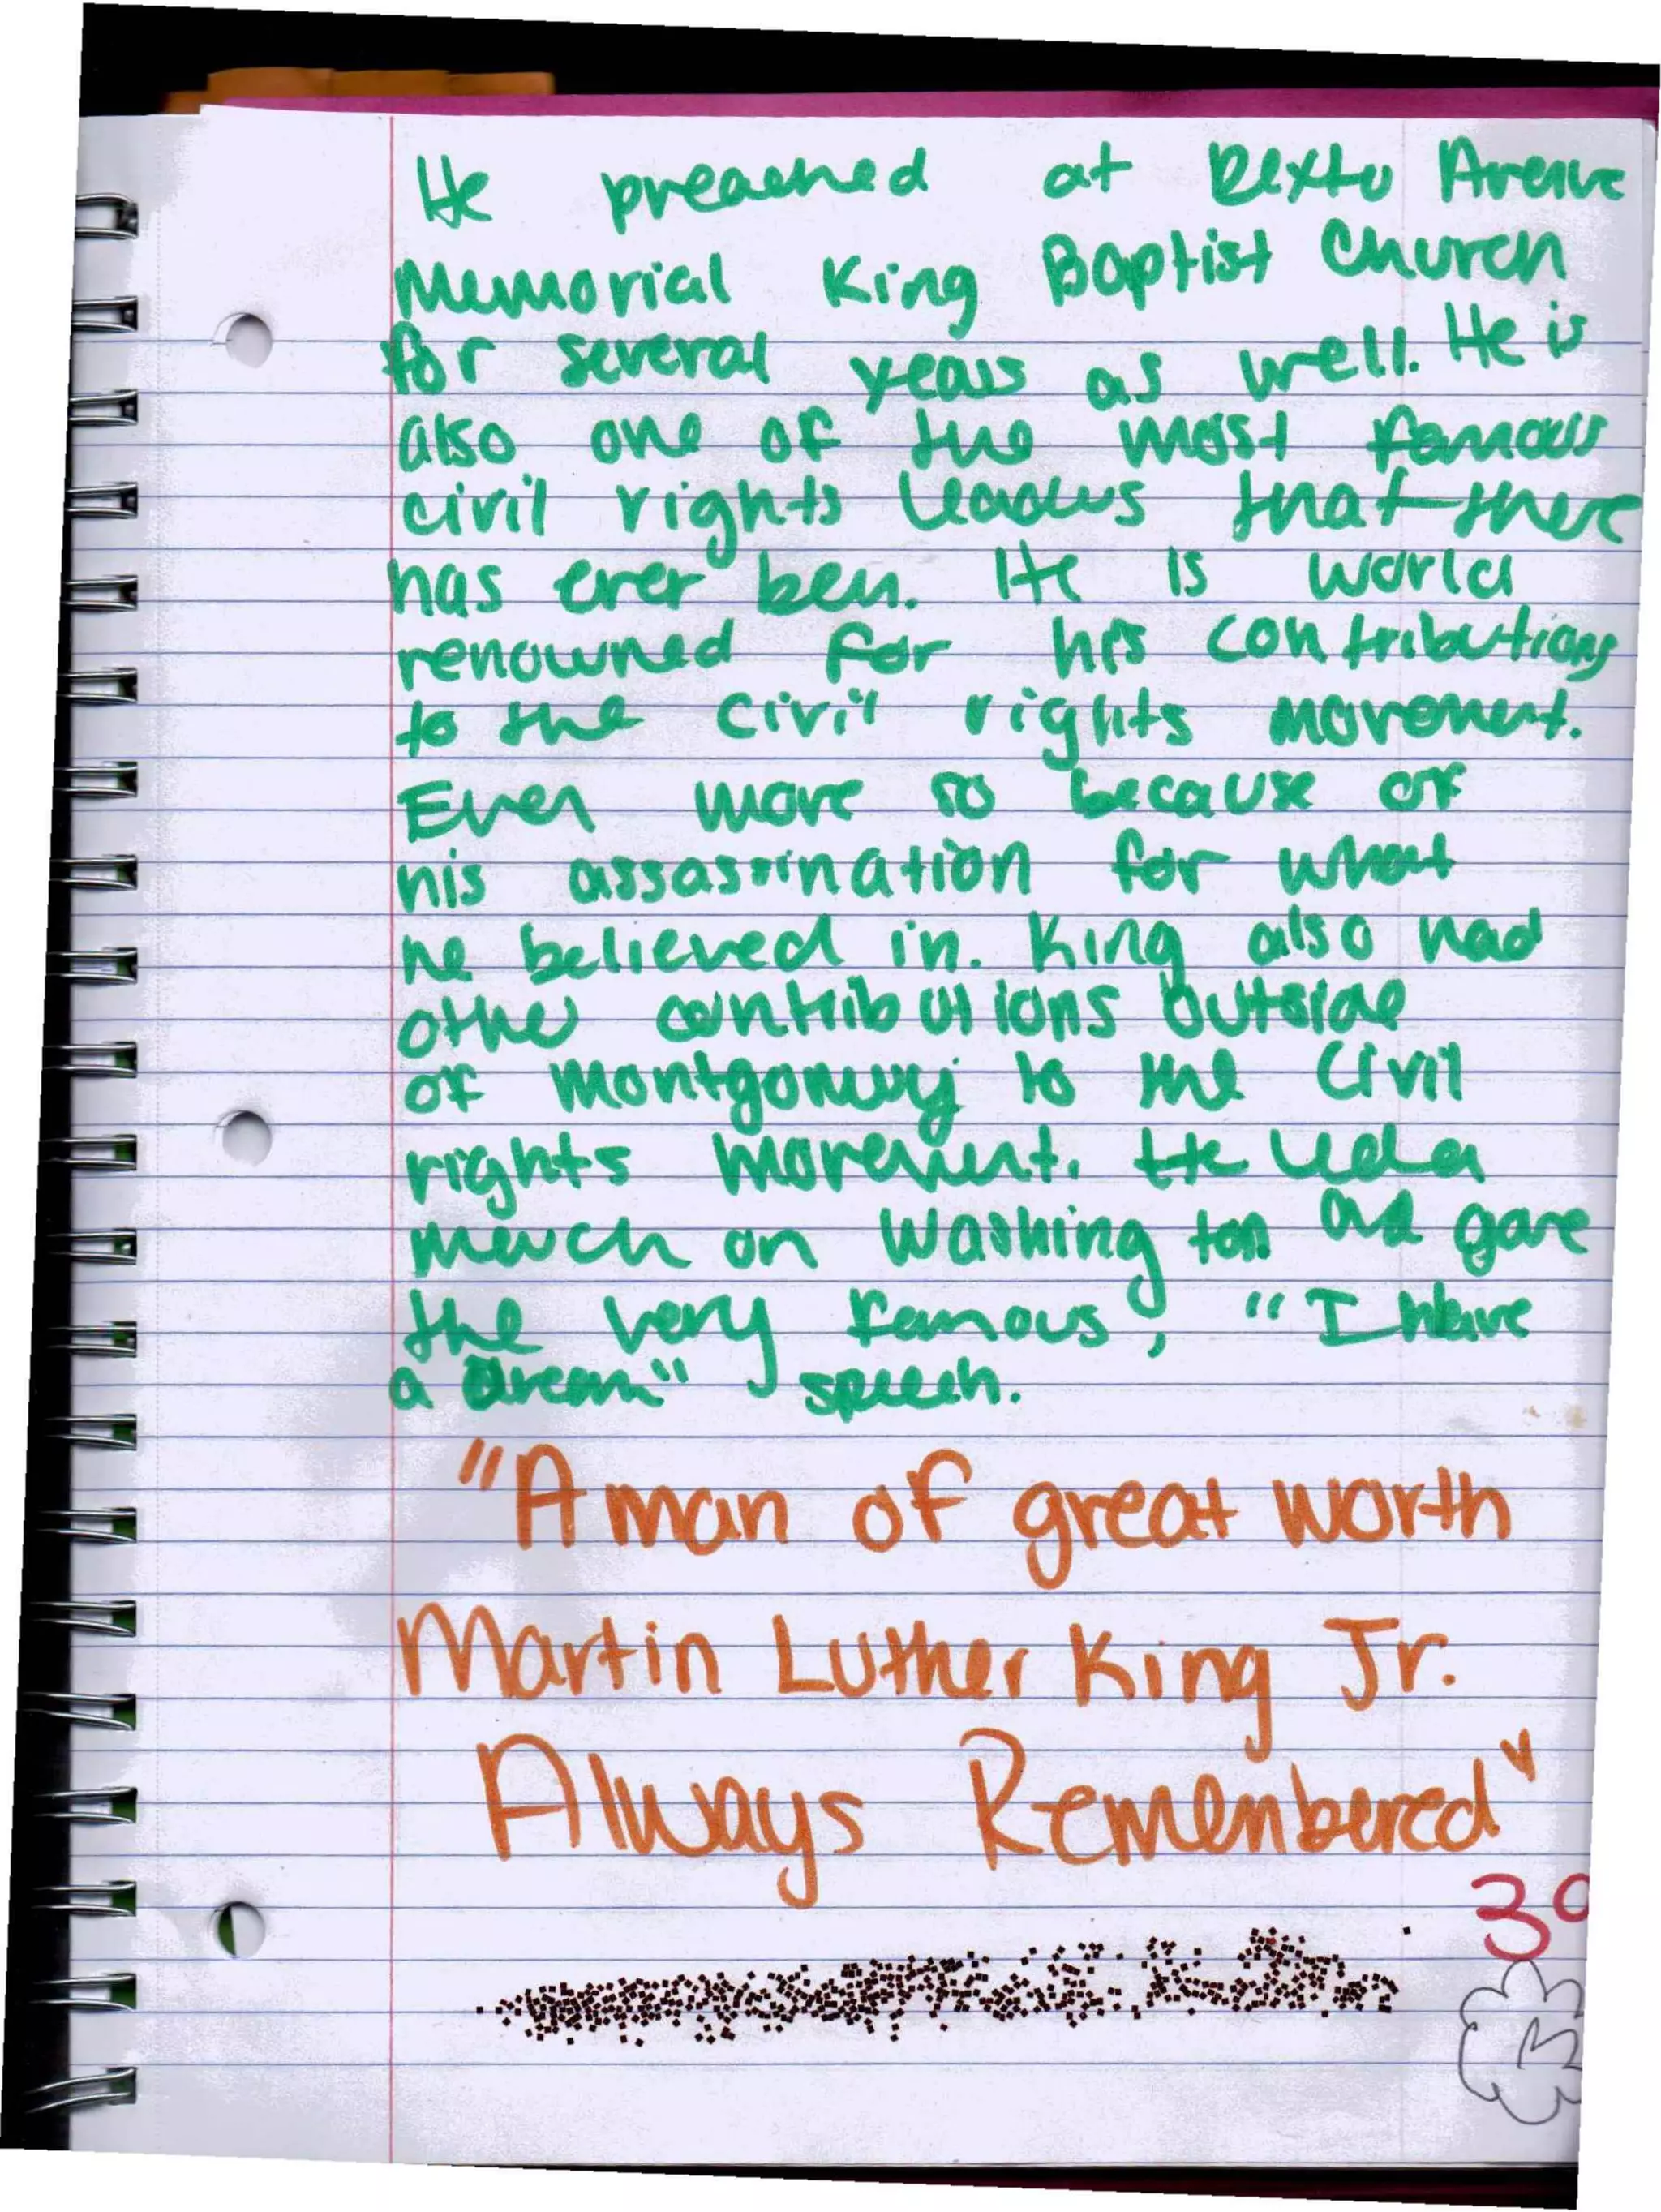 He preached at Dexter Avenue
Memorial King Baptist Church
for several years as well. He is
also one of the most famous
civil rights leaders that there
has ever ben. He is world
renowned for his contributions
to the civil rights movement.
Even more so because of
his assassination for what
he believed in. King also had
other contributions outside
of Montgomery to the civil
rights movement. He led a
march on Washington and gave
the very famous, "I have
a Dream" speech.
"A man of great worth
Martin Luther King Jr.
Always Remembered"
30